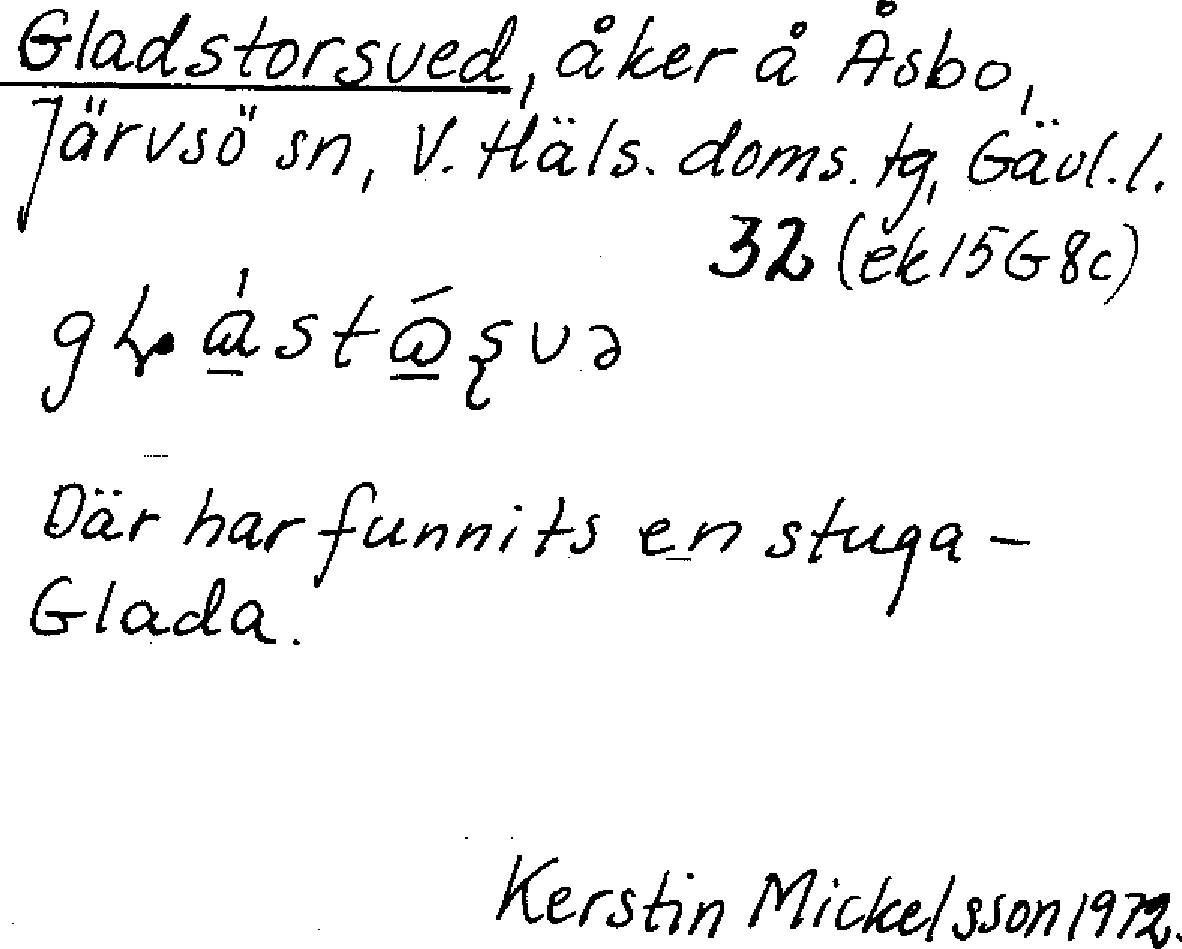 Gladstorsved, åker å Åsbo,
Järvsö sn, V. Häls. doms. tg, Gävl. l.
32 (ek 15G 8c)
Där har funnits en stuga –
Glada.
Kerstin Mickelsson 1972.